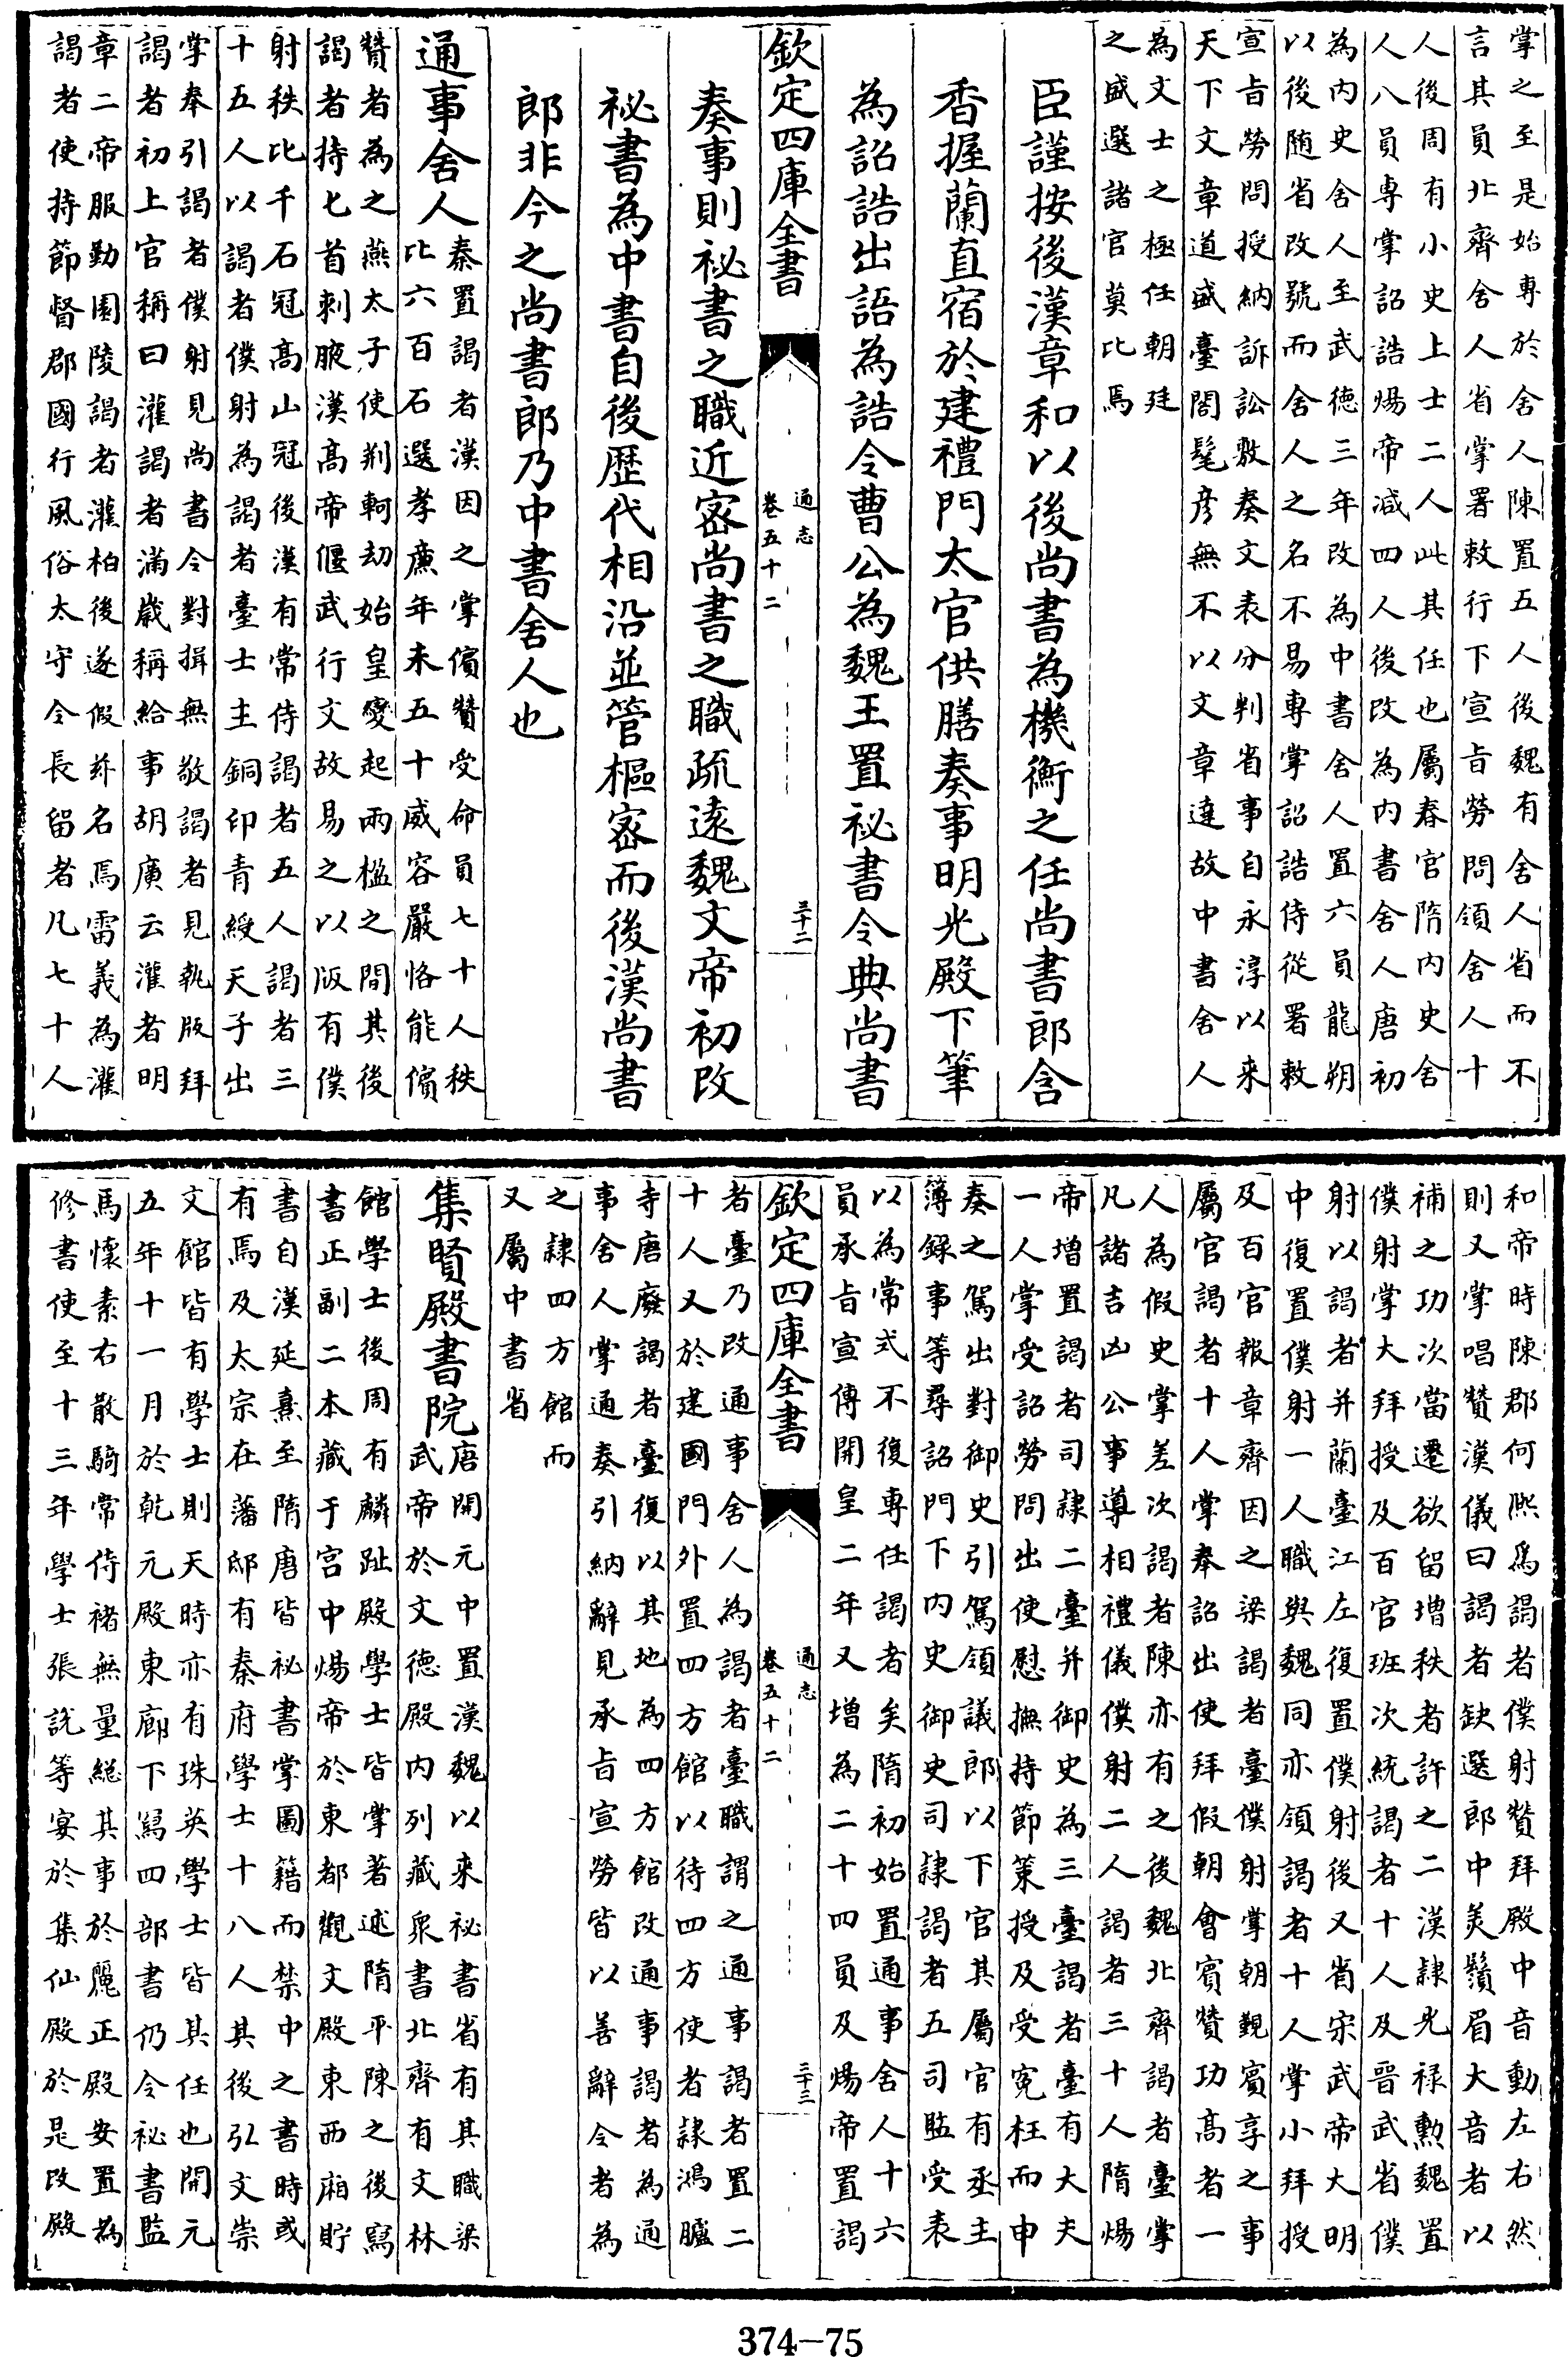 掌之至是始専於舍人陳置五人後魏有舍人省而不
言其員北齊舍人省掌署敕行下宣㫖勞問領舍人十
人後周有小史上士二人此其任也屬春官隋内史舍
人八員専掌詔誥煬帝减四人後改為内書舍人唐初
為内史舍人至武徳三年改為中書舍人置六員龍朔
以後随省改號而舍人之名不易專掌詔誥侍從署敕
宣㫖勞問授納訴訟敷奏文表分判省事自永淳以来
天下文章道盛臺閣髦彦無不以文章達故中書舍人
為文士之極任朝廷
之盛選諸官莫比焉
臣謹按後漢章和以後尚書為機衡之任尚書郎含
香握蘭直宿於建禮門太官供膳奏事明光殿下筆
為詔誥出語為誥令曹公為魏王置祕書令典尚書
欽定四庫全書
通志
卷五十二
三十二
奏事則祕書之職近宻尚書之職疏逺魏文帝初改
祕書為中書自後歴代相沿並管樞宻而後漢尚書
郎非今之尚書郎乃中書舍人也
通事舍人
秦置謁者漢因之掌儐贊受命員七十人秩
比六百石選孝廉年未五十威容嚴恪能儐
贊者為之燕太子使荆軻刦始皇變起兩楹之間其後
謁者持匕首刺腋漢髙帝偃武行文故易之以版有僕
射秩比千石冠髙山冠後漢有常侍謁者五人謁者三
十五人以謁者僕射為謁者臺士主銅印青綬天子出
掌奉引謁者僕射見尚書令對揖無敬謁者見執版拜
謁者初上官稱曰灌謁者滿歲稱給事胡廣云灌者明
章二帝服勤園陵謁者灌柏後遂假茲名焉雷義為灌
謁者使持節督郡國行風俗太守令長留者凡七十人
和帝時陳郡何熈為謁者僕射贊拜殿中音動左右然
則又掌唱贊漢儀曰謁者缺選郎中美鬚眉大音者以
補之功次當遷欲留増秩者許之二漢隷光禄勲魏置
僕射掌大拜授及百官班次統謁者十人及晋武省僕
射以謁者并蘭臺江左復置僕射後又省宋武帝大明
中復置僕射一人職與魏同亦領謁者十人掌小拜授
及百官報章齊因之梁謁者臺僕射掌朝覲賓享之事
屬官謁者十人掌奉詔出使拜假朝會賓贊功髙者一
人為假史掌差次謁者陳亦有之後魏北齊謁者臺掌
凡諸吉凶公事導相禮儀僕射二人謁者三十人隋煬
帝増置謁者司隷二臺并御史為三臺謁者臺有大夫
一人掌受詔勞問出使慰撫持節策授及受寃枉而申
奏之駕出對御史引駕領議郎以下官其屬官有丞主
簿録事等尋詔門下内史御史司隷謁者五司監受表
以為常式不復専任謁者矣隋初始置通事舍人十六
員承㫖宣傳開皇二年又增為二十四員及煬帝置謁
欽定四庫全書
通志
卷五十二
三十三
者臺乃改通事舍人為謁者臺職謂之通事謁者置二
十人又於建國門外置四方館以待四方使者隷鴻臚
寺唐廢謁者臺復以其地為四方館改通事謁者為通
事舍人掌通奏引納辭見承㫖宣勞皆以善辭令者為
之隷四方館而
又屬中書省
集賢殿書院
唐開元中置漢魏以来祕書省有其職梁
武帝於文徳殿内列藏衆書北齊有文林
館學士後周有麟趾殿學士皆掌著述隋平陳之後寫
書正副二本藏于宫中煬帝於東都觀文殿東西廂貯
書自漢延熹至隋唐皆祕書掌圖籍而禁中之書時或
有焉及太宗在藩邸有秦府學士十八人其後弘文崇
文館皆有學士則天時亦有珠英學士皆其任也開元
五年十一月於乾元殿東廊下寫四部書仍令祕書監
馬懷素右散騎常侍禇無量總其事於麗正殿安置為
修書使至十三年學士張説等宴於集仙殿於是改殿
374—75